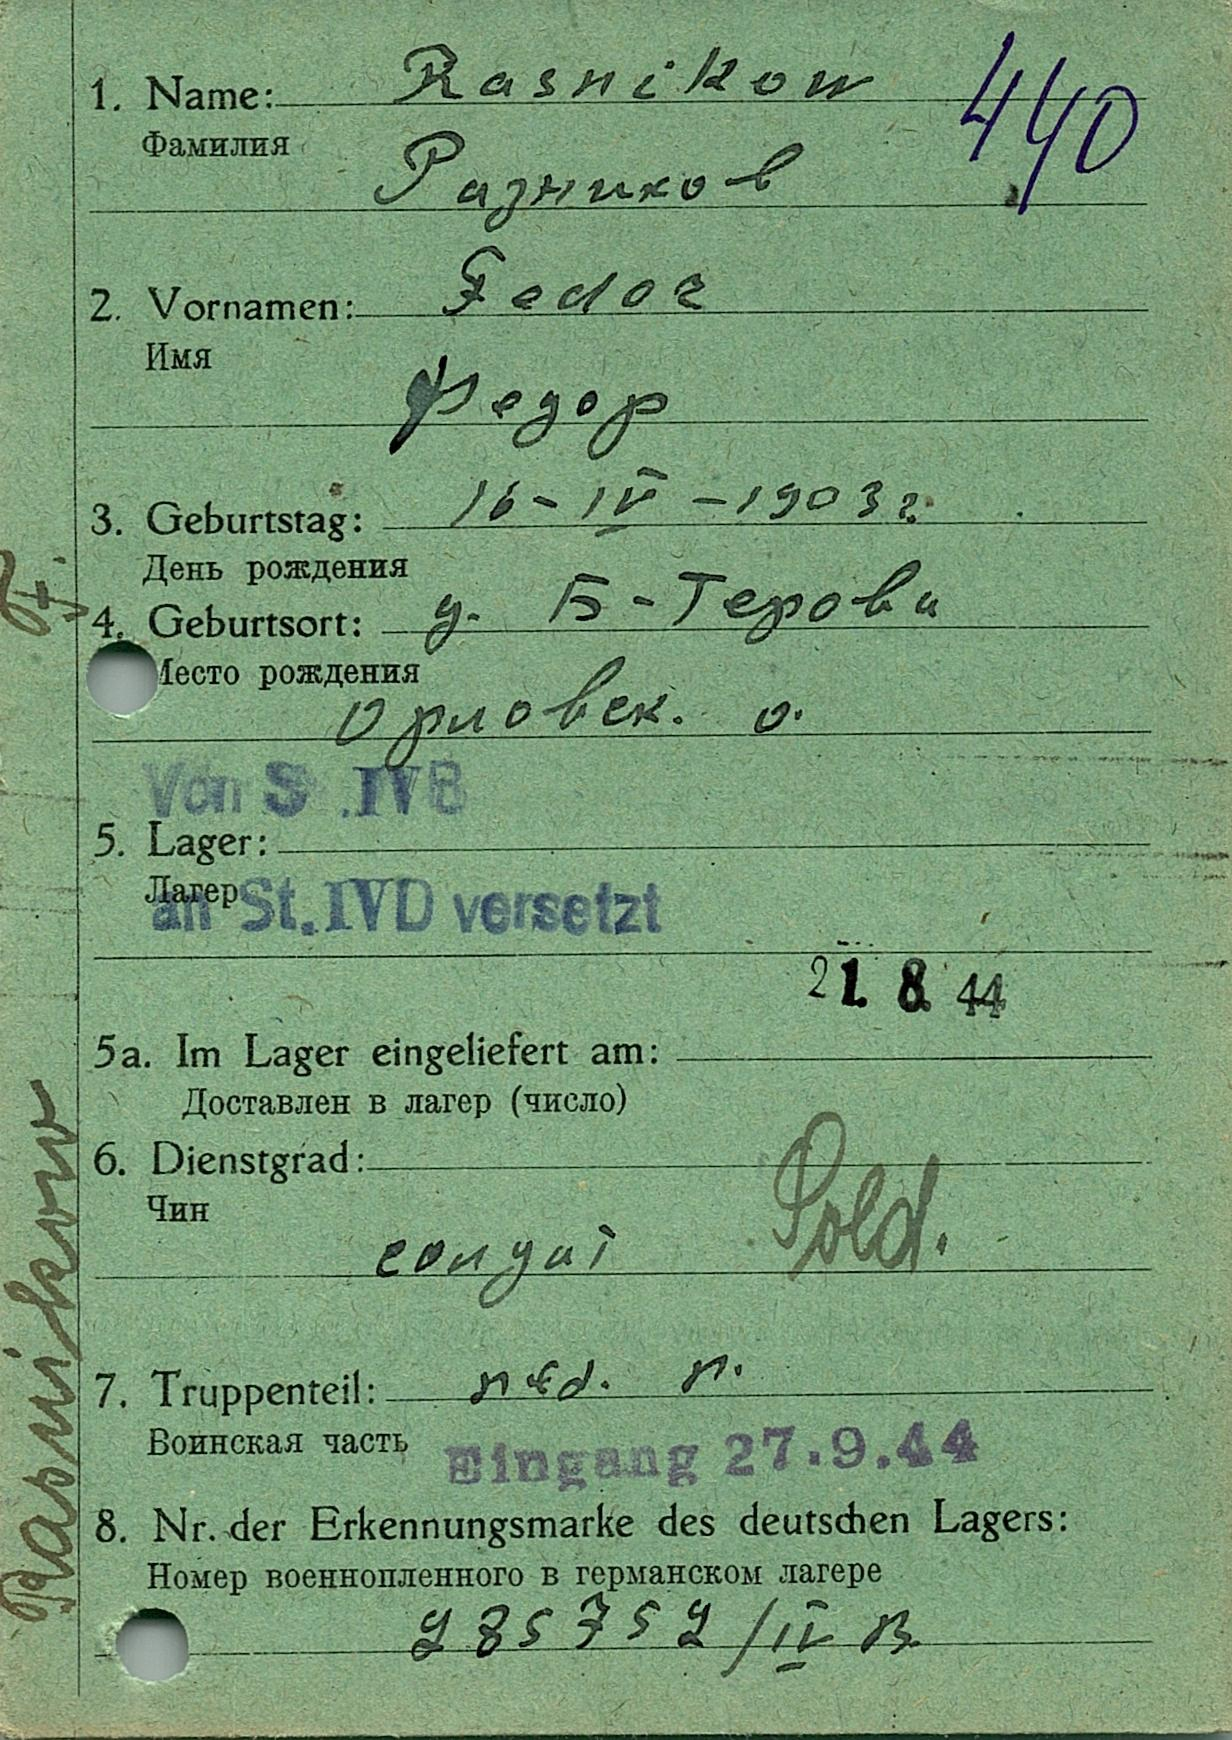 1. Name: Rasnikow
440
Фамилия
Разников
2. Vornamen: Fedor
Имя
Федор
3. Geburtstag: 16-IV-1903 г.
День рождения
4. Geburtsort: д. Б-Терова
Место рождения
Орловск. о.
Von S .IVB
5. Lager:
Лагер
an St. IVD versetzt
21. 8. 44
5a. Im Lager eingeliefert am:
Доставлен в лагер (число)
6. Dienstgrad:
Чин
солдат Sold.
7. Truppenteil: п.
Воинская часть
Eingang 27.9.44
8. Nr. der Erkennungsmarke des deutschen Lagers:
Номер военнопленного в германском лагере
285752/IV B.
Rasnikow F.